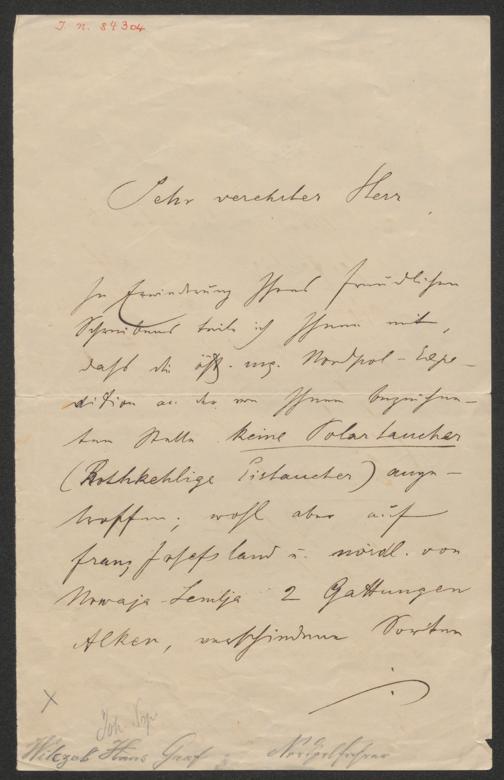 J. N. 84304
Sehr verehrter Herr
In Erwiderung Ihres freundlichen
Schreibens teile ich Ihnen mit,
daß die öst. ung. Nordpol-Expe-
dition an der von Ihnen bezeichne-
ten Stelle keine Polartaucher
(Rothkehlige Eistaucher) ange-
troffen; wohl aber auf
Franz Josefsland u. nördl. von
Nowaja-Semlja 2 Gattungen
Alken, verschiedene Sorten
Joh Nep
Wilczek Hans Graf Nordpolfahrer